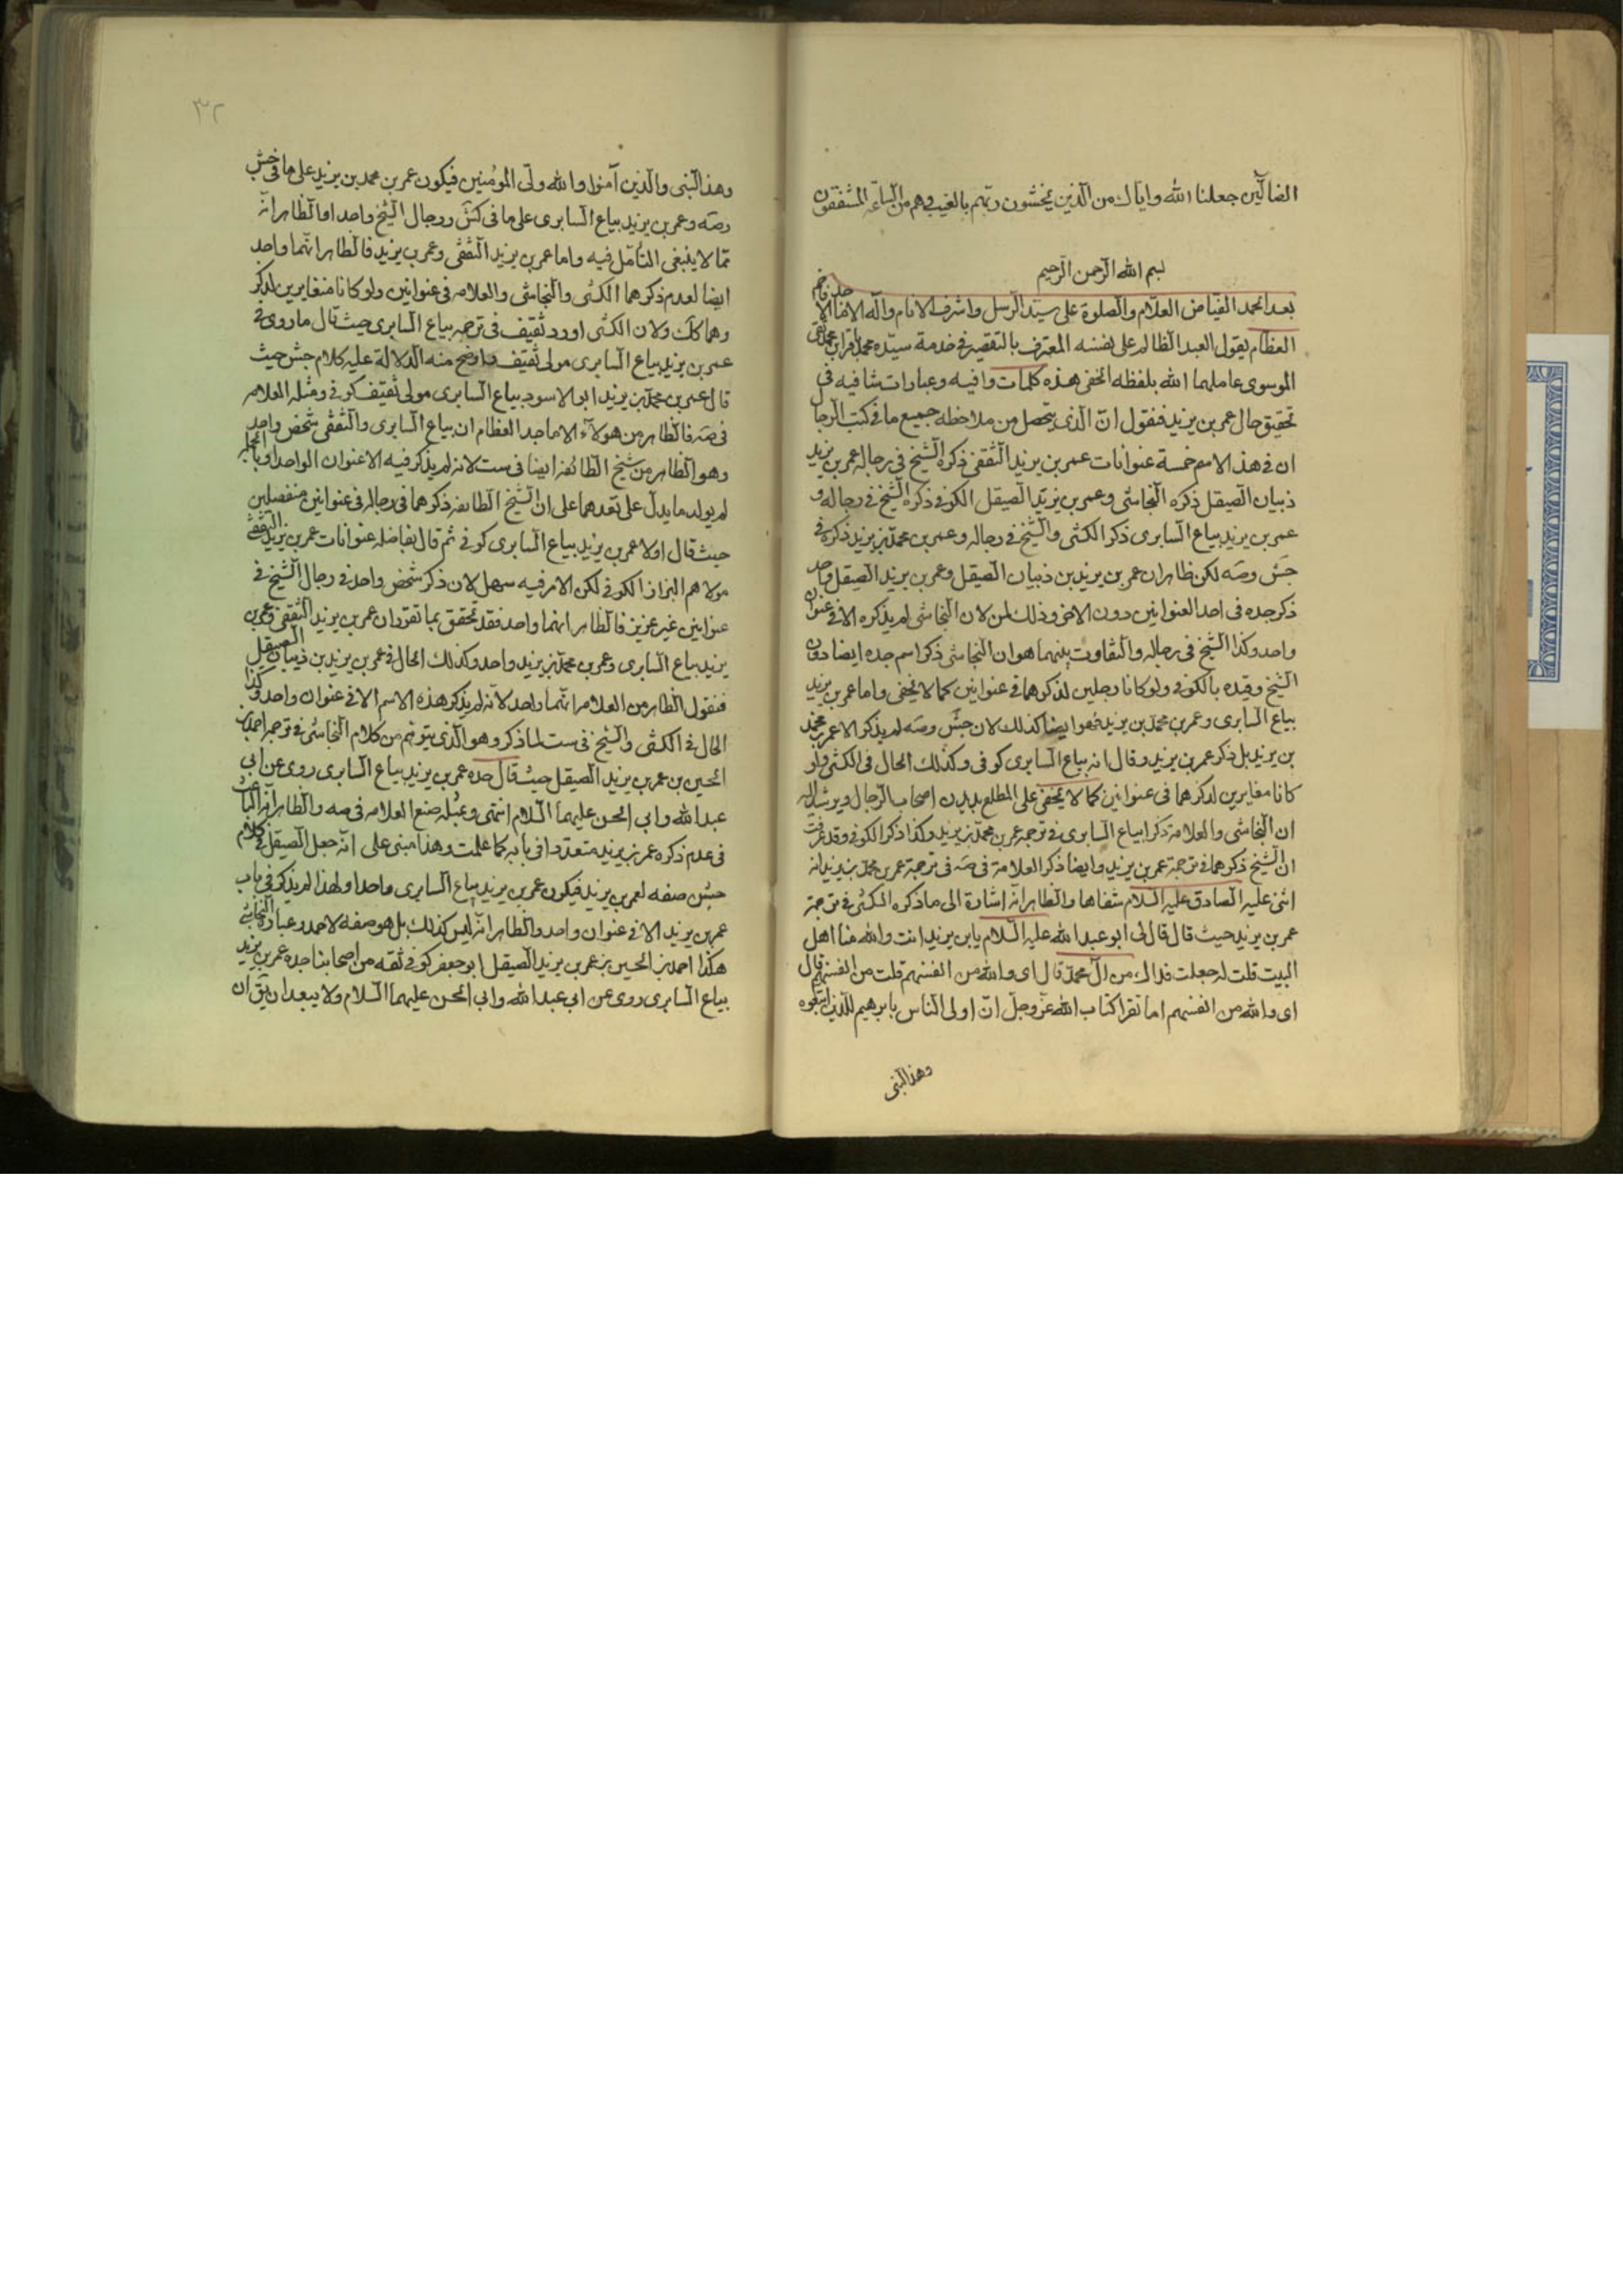 الضالين جعلنا الله واياك من الذين يخشون ربهم بالغيب وهم من الساعة مشفقون
بسم الله الرحمن الرحيم
بعد الحمد الفياض العلام والصلوة على سيد الرسل واشرف الانام وآله الامناء
العظام يقول العبد الظالم على نفسه المعترف بالتقصير في خدمة سيده محمد باقر ابن محمد نقى
الموسوى عاملهما الله بلفظه الخفى هذه كلمات وافيه وعبارات شافيه في
تحقيق حال عمر بن يزيد فنقول ان الذى يتحصل من ملاحظه جميع ما في كتب الرجال
ان في هذ الاسم خمسة عنوانات عمر بن يزيد الثقفى ذكره الشيخ في رجاله عمر بن يزيد
ذبيان الصيقل ذكره النجاشى وعمر بن يزيد الصيقل الكوفى ذكره الشيخ في رجاله و
عمر بن يزيد بياع السابرى ذكر الكشى والشيخ في رجاله وعمر بن محمد بن يزيد ذكره في
جش وصه لكن ظاهر ان عمر بن يزيد بن ذبيان الصيقل وعمر بن يزيد الصيقل واحد
ذكر جده في احد العنوانين دون الاخر وذلك لان النجاشى لم يذكره الا في عنوان
واحد وكذا الشيخ في رجاله والتفاوت بينهما هو ان النجاشى ذكر اسم جده ايضا دون
الشيخ وقيده بالكوفى ولو كانا رجلين لذكرهما في عنوانين كما لا يخفى واما عمر بن يزيد
بياع السابرى وعمر بن محمد بن يزيد فهو ايضا كذلك لان جش وصه لم يذكر الا عمر بن محمد
بن يزيد بل ذكر عمر بن يزيد وقال انه بياع السابرى كوفى وكذلك الحال في الكشى ولو
كانا مغايرين لذكرهما في عنوانين كما لا يخفى على المطلع بديدن اصحاب الرجال ويرشد اليه
ان النجاشى والعلامة ذكرا بياع السابرى في ترجمة عمر بن محمد بن يزيد وكذا ذكر الكوفى وقد عرفت
ان الشيخ ذكرهما في ترجمة عمر بن يزيد وايضا ذكر العلامة في صه في ترجمة عمر بن محمد بن يزيد انه
اثنى عليه الصادق عليه السلام شفاها والظاهر انه اشارة الى ما ذكره الكشى في ترجمة
عمر بن يزيد حيث قال قال لى ابو عبد الله عليه السلام يابن يزيد انت والله منا اهل
البيت قلت له جعلت فداك من آل محمد قال اى والله من انفسهم قلت من انفسهم قال
اى والله من انفسهم اما تقرا كتاب الله عز وجل ان اولى الناس بابرهيم للذين اتبعوه
وهذا النبى
٣٢
وهذا النبى والذين آمنوا والله ولى المؤمنين فيكون عمر بن محمد بن يزيد على ما في جش
وصه وعمر بن يزيد بياع السابرى على ما في كش ورجال الشيخ واحد اما الظاهر انه
مما لا ينبغى التأمل فيه واما عمر بن يزيد الثقفى وعمر بن يزيد فالظاهر انهما واحد
ايضا لعدم ذكرهما الكشى والنجاشى والعلامه في عنوانين ولو كانا متغايرين لذكر
وهما كك ولان الكشى اورد ثقيف في ترجمه بياع السابرى حيث قال ما روى في
عمر بن يزيد بياع السابرى مولى ثقيف واوضح منه الدلالة عليه كلام جش حيث
قال عمر بن محمد بن يزيد ابو الاسود بياع السابرى مولى ثقيف كوفى ومثله العلامه
في صه فالظاهر من هولاء الاماجد العظام ان بياع السابرى والثقفى شخص واحد
وهو الظاهر من شيخ الطائفه ايضا في ست لانه لم يذكر فيه الا عنوان الواحد وبالجمله
لم يولد ما يدل على تعددهما على ان الشيخ الطائفه ذكرهما في رجاله في عنوانين منفصلين
حيث قال اولا عمر بن يزيد بياع السابرى كوفى ثم قال بفاصله عنوانات عمر بن يزيد الثقفى
مولاهم البزاز الكوفى لكن الامر فيه سهل لان ذكر شخص واحد في رجال الشيخ في
عنوانين غير عزيز فالظاهر انهما واحد فقد تحقق بما تقرر ان عمر بن يزيد الثقفى وعمر بن
يزيد بياع السابرى وعمر بن محمد بن يزيد واحد وكذلك الحال في عمر بن يزيد بن ذبيان الصيقل
فنقول الظاهر من العلامه انهما واحد لانه لم يذكر هذه الاسم الا في عنوان واحد وكذا
الحال في الكشى والشيخ في ست لما ذكر وهو الذى يتوهم من كلام النجاشى في ترجمة احمد بن
الحسين بن عمر بن يزيد الصيقل حيث قال جده عمر بن يزيد بياع السابرى روى عن ابى
عبد الله وابى الحسن عليهما السلام انتهى وعليه صنع العلامه في صه والظاهر انه الباعث
في عدم ذكره عمر بن يزيد متعددا في بابه كما علمت وهذا مبنى على انه جعل الصيقل في كلام
جش صفه لعمر بن يزيد فيكون عمر بن يزيد بياع السابرى واحدا ولهذا لم يذكر في باب
عمر بن يزيد الا في عنوان واحد والظاهر انه ليس كذلك بل هو صفه لاحمد وعبارة النجاشى
هكذا احمد بن الحسين بن عمر بن يزيد الصيقل ابو جعفر كوفى ثقه من اصحابنا جده عمر بن يزيد
بياع السابرى روى عن ابى عبد الله وابى الحسن عليهما السلام ولا يبعد ان يق ان